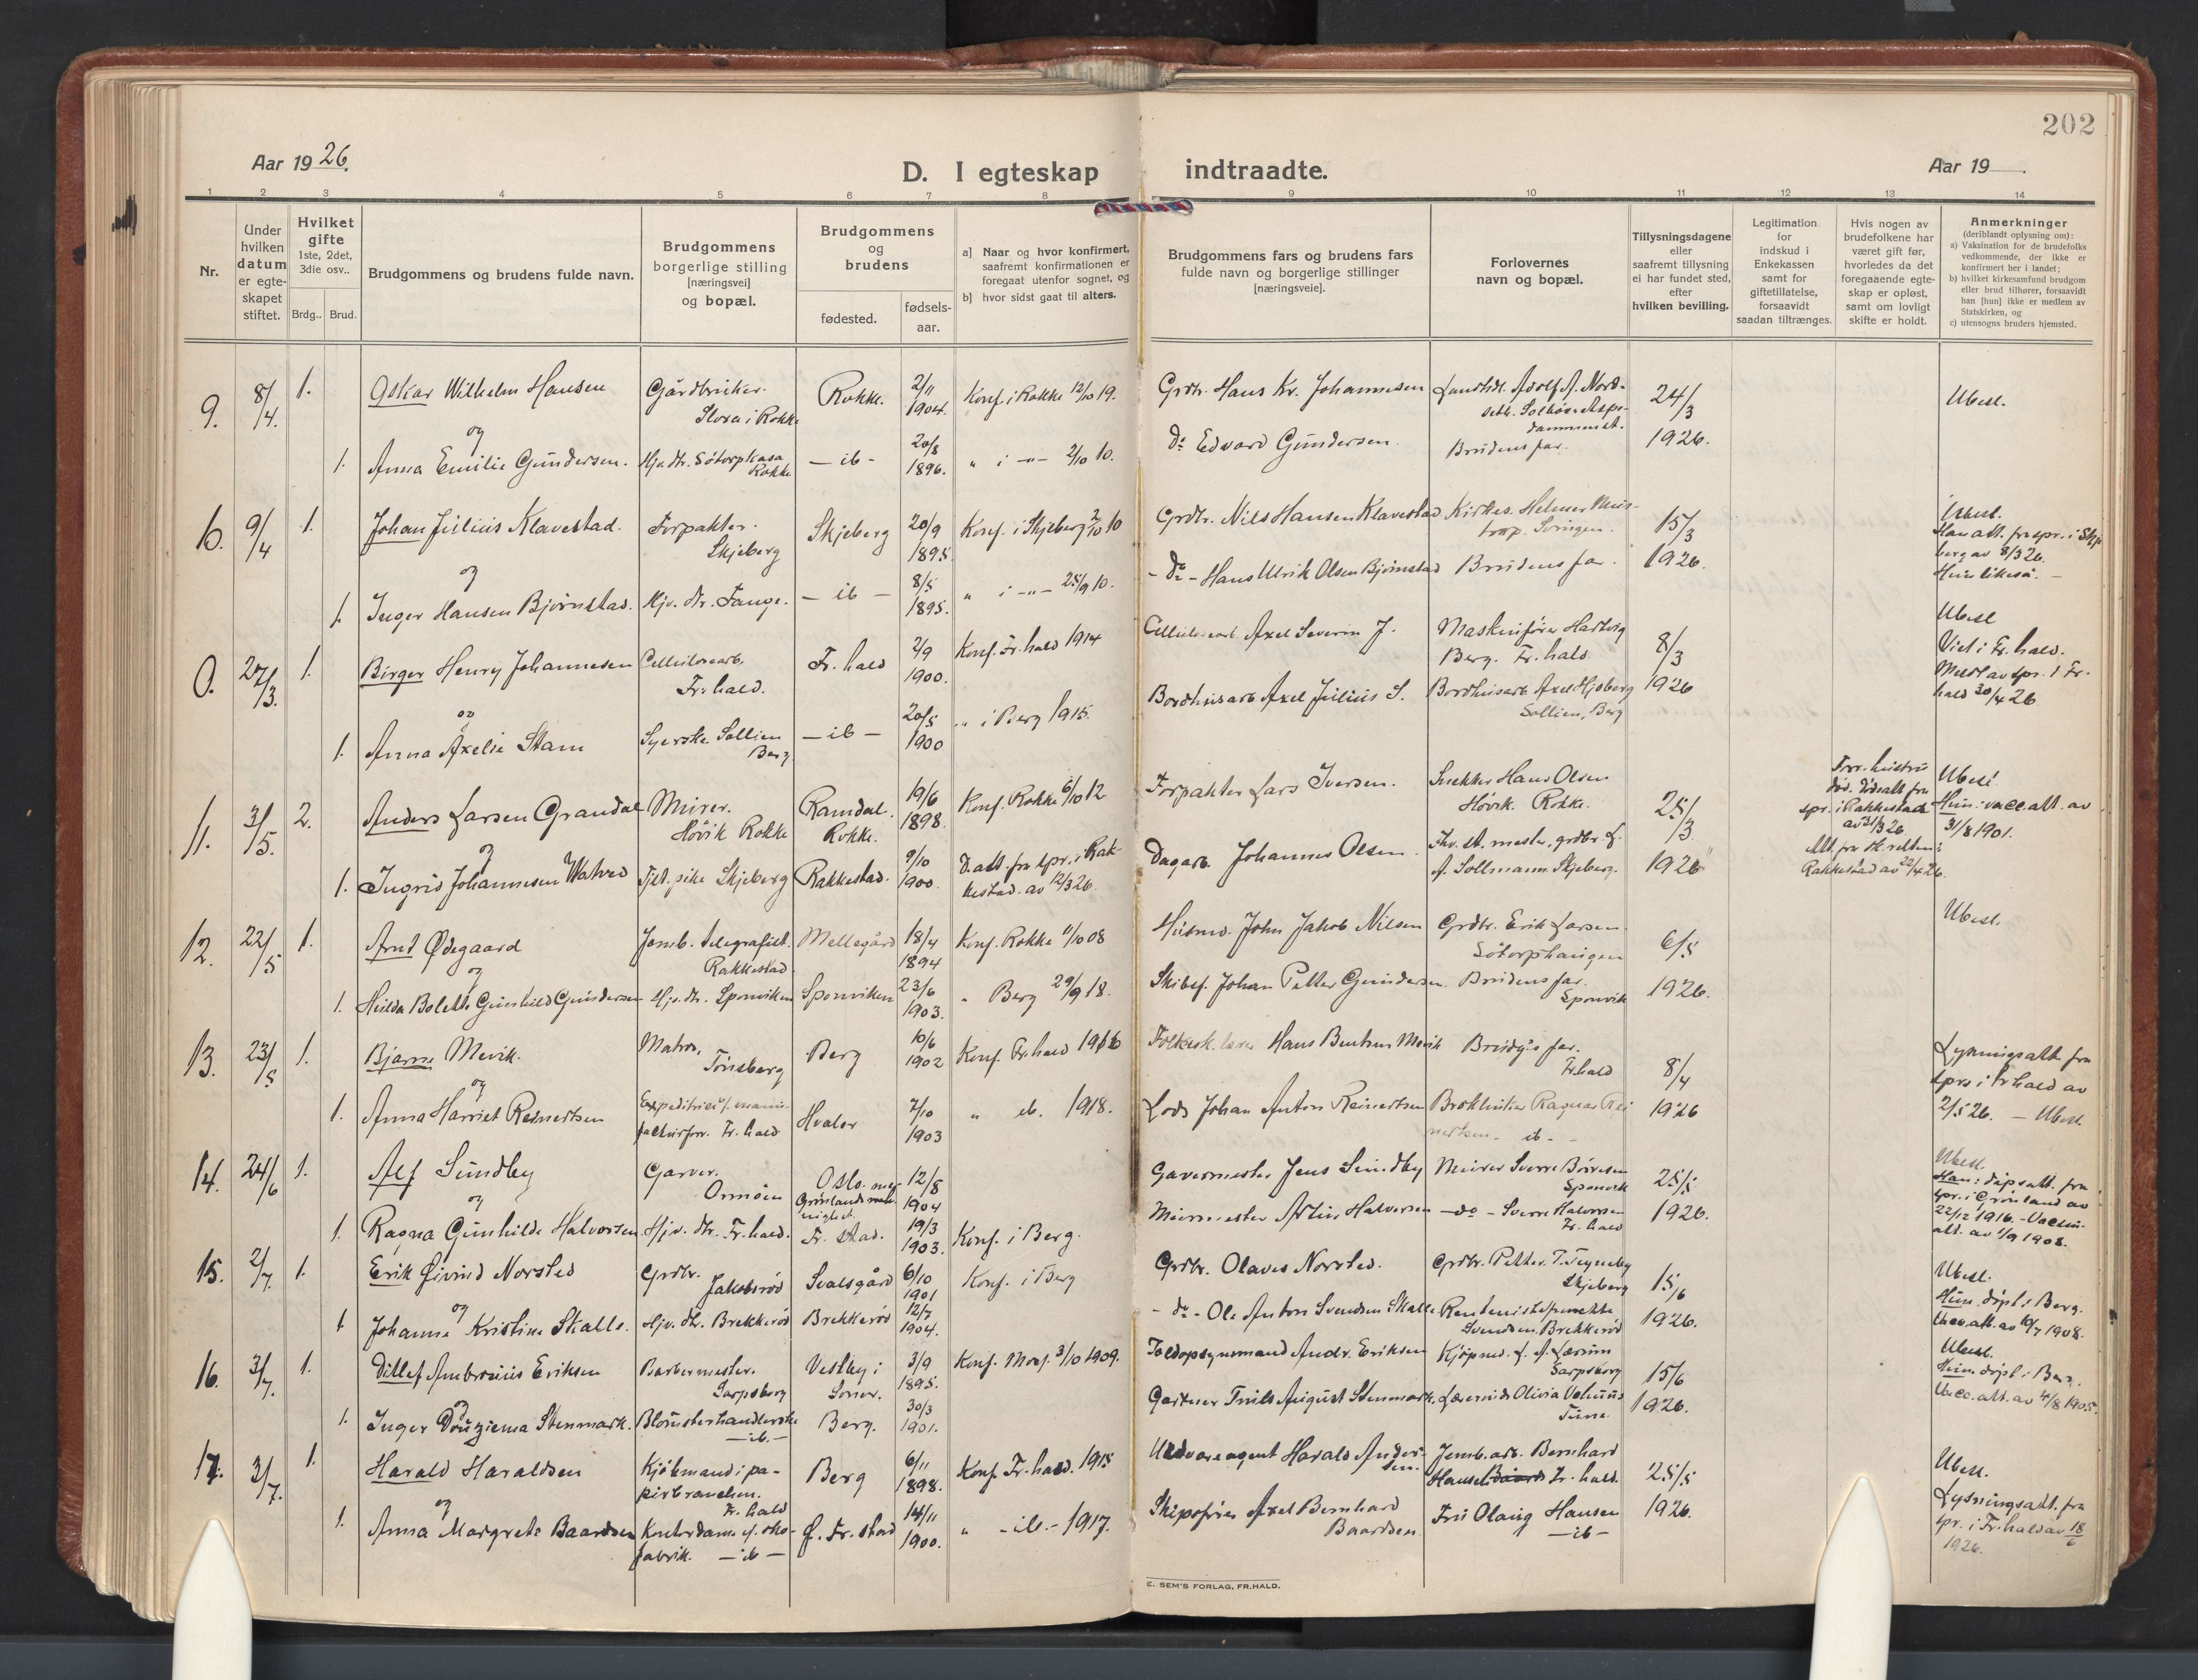 202
Aar 19 26.
D. I egteskap indtraadte.
Aar 19
1 2 3 4 5 6 7 8 9 10 11 12 13 14
Nr.
Under hvilken datum er egte-skapet stiftet.
Hvilket gifte
1ste, 2det, 3die osv..
Brdg.. Brud.
Brudgommens og brudens fulde navn.
Brudgommens
borgerlige stilling
[næringsvei]
og bopæl.
Brudgommens
og
brudens
fødested.
fødsels-
aar.
a] Naar og hvor konfirmert,
saafremt konfirmationen er
foregaat utenfor sognet, og
b] hvor sidst gaat til alters.
Brudgommens fars og brudens fars
fulde navn og borgerlige stillinger
[næringsveie].
Forlovernes
navn og bopæl.
Tillysningsdagene
eller
saafremt tillysning
ei har fundet sted,
efter
hvilken bevilling.
Legitimation
for
indskud i
Enkekassen
samt for
giftetillatelse,
forsaavidt
saadan tiltrænges.
Hvis nogen av
brudefolkene har
været gift før,
hvorledes da det
foregaaende egte-
skap er opløst,
samt om lovligt
skifte er holdt.
Anmerkninger
(deriblandt oplysning om):
a) Vaksination for de brudefolks
vedkommende, der ikke er
konfirmert her i landet;
b) hvilket kirkesamfund brudgom
eller brud tilhører, forsaavidt
han [hun] ikke er medlem av
Statskirken, og
c) utensogns bruders hjemsted.
9. 8/4. 1. Oskar Wilhelm Hansen Gårdbruker. Flora i Rokke Rokke. 2/11 1904. Konf. i Rokke 12/10 19. Grdbr. Hans Kr. Johannesen 24/3 Ubesl.
og
1. Anna Emilie Gundersen. Hjv. dtr. Søtorpkasa Rokke – ib – 20/8 1896. " i –"– 2/10 10. Do Edvard Gundersen. Brudens far. 1926.
10. 9/4 1. Johan Julius Klavestad. Forpakter. Skjeberg Skjeberg 20/9 1895. Konf. i Skjeberg 2/10 10 Grdbr. Nils Hansen Klavestad Kirkes. Helmer 15/3 Ubesl.
Han att. fra spr. i Skje
berg av 8/3 26.
Hun likeså. –
og
1. Inger Hansen Bjørnstad. Hjv. dtr. – ib – 8/5 1895. " i –"– 25/9 10. – Do – Hans Ulrik Olsen Bjørnstad Brudens far. 1926.
0. 27/3. 1. Birger Henry Johannesen Cellulosearb. Fr.hald. Fr. hald 2/9 1900. Konf. Fr.hald 1914 Cellulosearb. Axel Severin J. Maskinfører Hartvig Berg. Fr. hald. 8/3 Ubesl
Viet i Fr. hald.
Meldt av spr. i Fr.
hald 30/4 26.
og
1. Anna Axelie Stam Syerske. Sollien Berg – ib – 20/5 1900 " i Berg 1915. Bordhusarb Axel Julius S. Bordhusarb Axel Hjoberg Sollien, Berg 1926
11. 3/5. 2. Anders Larsen Grandal Murer. Høvik Rokke Ramdal. Rokke. 19/6 1898. Konf. Rokke 6/10 12 Forpakter Lars Iversen. Snekker Hans Olsen Høvik Rokke. 25/3 Forr. hustru
død. Dødsatt fra
spr. i Rakkestad
av 31/3 26.
Att. fra sk. retten i
Rakkestad av 22/4 26.
Ubesl
Hun: vacc. att. av
31/8 1901.
og
1. Ingrid Johannesen Watved Tjst. pike Skjeberg Rakkestad. 9/10 1900. D. att. fra spr. i Rak-
kestad. av 12/3 26. Dagarb. Johannes Olsen. A. Sollmann. Skjeberg. 1926
12. 22/5 1. Arnt Ødegaard Jernb. telegrafist. Rakkestad. Mellegård 18/4 1894 Konf. Rokke 11/10 08 Husmd. John Jakob Nilsen Grdbr. Erik Larsen Søtorphaugen 6/5 Ubesl.
og
1. Hulda Bolette Gunhild Gundersen Hjv. dtr. Sponviken Sponviken 23/6 1903. " Berg 29/9 18. Skibsf. Johan Petter Gundersen. Brudens far. Sponvik 1926.
13. 23/5 1. Bjarne Mevik. Matros, Tønsberg Berg 10/6 1902 Konf. Fr.hald 1916 Folkesk. lærer Hans Benthus Mevik Brudg's far. Fr.hald 8/4 Lysningsatt. fra
spr. i Fr hald av
2/5 26. – Ubesl.
og
1. Anna Harriet Reinertsen Expeditrice Fr. hald Hvaler 7/10 1903 " ib. 1918. Lods Johan Anton Reinertsen Ragnar Rei
nertsen. ib – 1926
14. 24/6 1. Alf Sundby Garver. Ormøen Oslo. Grønlands menighet. 12/8 1904 Garvermester Jens Sundby Murer Sverre Børresen Sponvik 25/5 Ubesl.
Han: dåpsatt. fra
spr. i Grønland av
22/12 1916. – Vaccin.
att. av 1/9 1908.
og
1. Ragna Gunhilde Halvorsen. Hjv. dtr. Fr. hald. Fr. stad. 19/3 1903. Konf. i Berg. Murmester Artur Halvorsen – do – Sverre Halvorsen Fr. hald 1926.
15. 2/7 1. Erik Øivind Norsted Grdbr. Jakobsrød Svalsgård 6/10 1901 Konf. i Berg Grdbr. Olaves Norsted. Grdbr. Petter. T. Skjeberg 15/6 Ubesl.
Hun. døpt i Berg.
Vacc. att. av 10/7 1908.
og
1 Johanne Kristine Skalle. Hjv. dtr. Brekkerød Brekkerød 12/7 1904. – do – Ole Anton Svendsen Skalle Svendsen. Brekkerød 1926.
16. 3/7. 1. Ditlef Ambrosius Eriksen Barbermester. Sarpsborg Vestby i Soner. 3/9 1895. Konf. Moss. 3/10 1909. Toldopsynsmand Andr. Eriksen Kjøpmd. L. A. Lærum Sarpsborg 15/6 Ubesl.
Hun. døpt i Berg.
Vacc. att. av 4/8 1905.
og
1. Inger Stenmark. Blomsterhandlerske – ib. – Berg. 30/3 1901. Gartner August Stenmark. Olivia Tune. 1926.
17. 3/7. 1. Harald Haraldsen Kjøbmand i pa-
pirbranchen. Fr. hald Berg 6/11 1898. Konf Fr.hald. 1915 Uldvareagent Harald Ander-
sen. Jernb. arb. Bernhard Hansen Fr. hald. 25/5 Ubesl.
Lysningsatt. fra
spr. i Fr.hald av 18/6
1926.
og
1. Anna Margrete Baardsen Kontordame v. sko-
fabrik. – ib – G. Fr. stad 14/11 1900. " – ib. – 1917. Skipsfører Axel Bernhard Baardsen Fru Olaug Hansen – ib – 1926.
E. SEM'S FORLAG, FR.HALD.